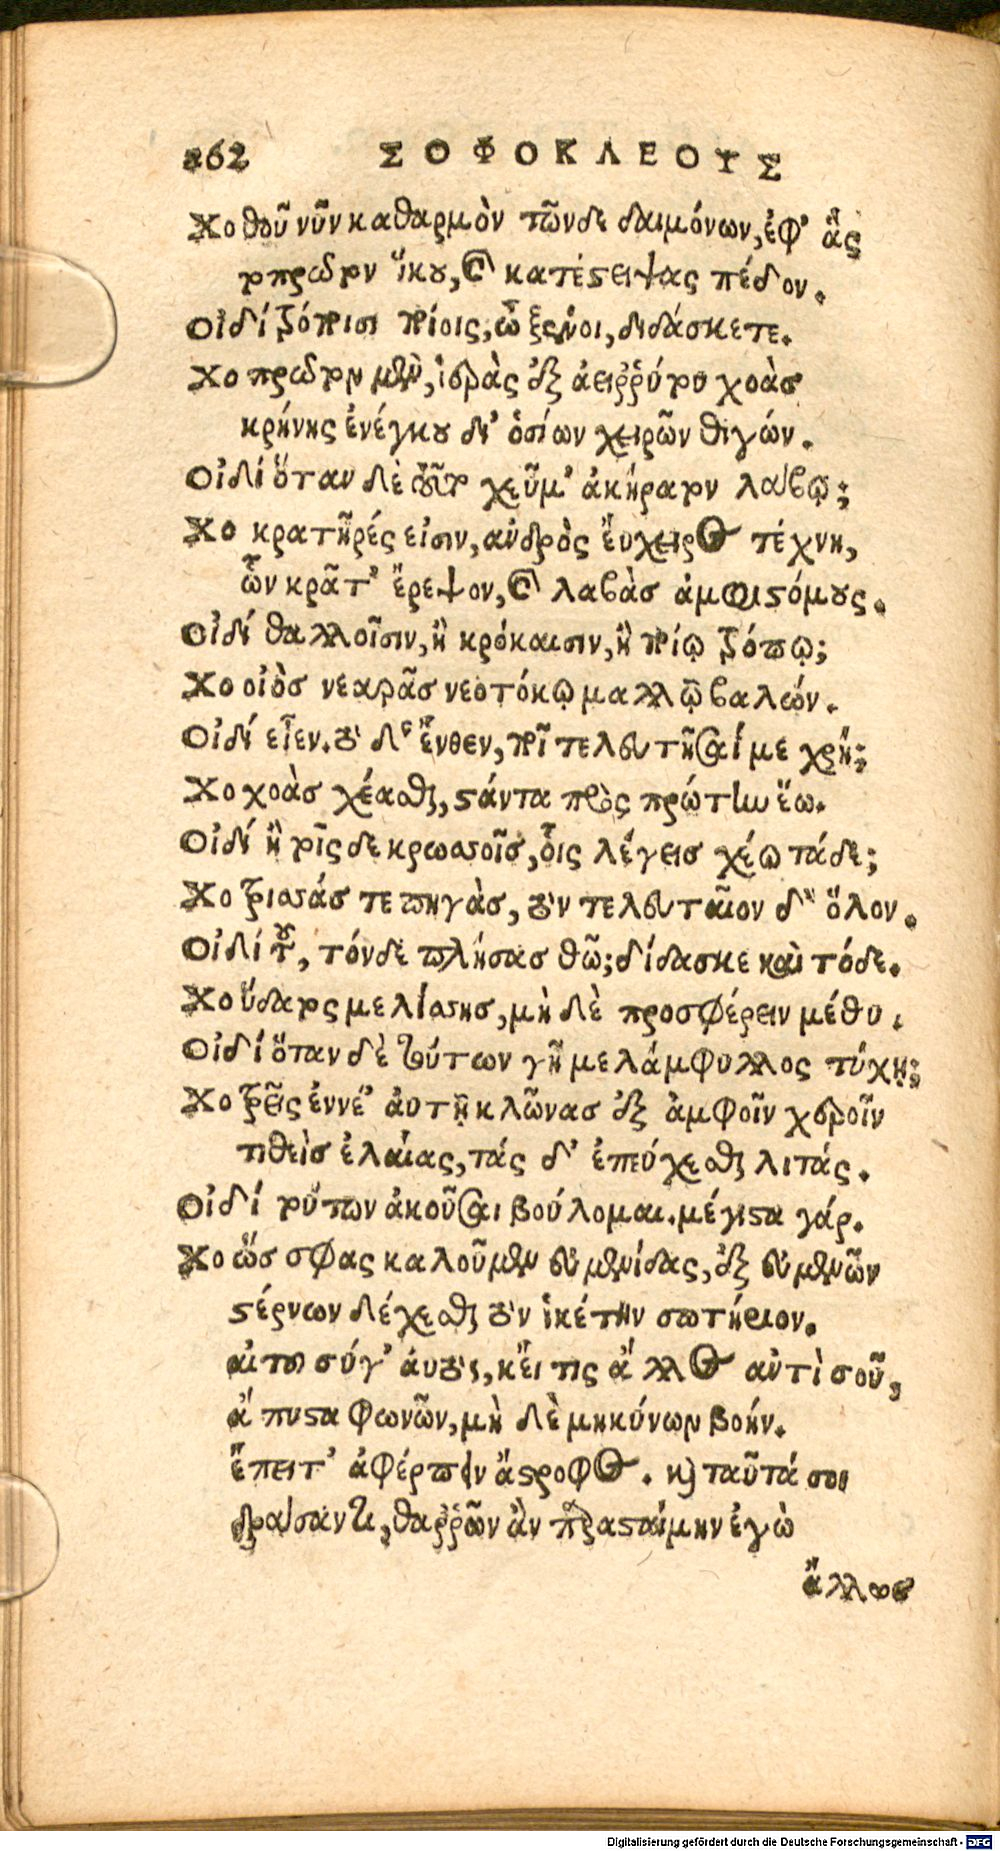 262 ΣΟΦΟΚΛΕΟΥΣ
Χο θοῦ νῦν καθαρμὸν τῶνδε δαιμόνων, ἐφ' ἃς
τοπρῶτον ἵκου, καὶ κατέστειψας πέδον.
Οἰδί τρόποισι ποίοις; ὦ ξένοι, διδάσκετε.
Χο πρῶτον μὲν, ἱερὰς ἐξ ἀειῤῥύτου χοὰσ
κρήνης ἐνέγκου δι' ὁσίων χειρῶν θιγών.
Οἰδί ὅταν δὲ τοῦτο χεῦμ' ἀκήρατον λάβω;
Χο κρατῆρές εἰσιν, ἀνδρὸς εὔχειρος τέχνη,
ὧν κρᾶτ' ἔρεψον, καὶ λαβὰσ ἀμφιστόμους.
Οἰδί θαλλοῖσιν, ἢ κρόκαισιν, ἢ ποίῳ τρόπῳ;
Χο οἰὸσ νεαρᾶσ νεοτόκῳ μαλλῷ βαλών.
Οἰδί εἶεν. τὸ δ' ἔνθεν, ποῖ τελευτῆσαί με χρή;
Χο χοὰσ χέασθαι, στάντα πρὸς πρώτην ἕω.
Οἰδί ἦ τοῖςδε κρωσσοῖσ, οἷς λέγεισ χέω τάδε;
Χο τρισσάσ τε πηγὰσ, τὸν τελευταῖον δ' ὅλον.
Οἰδί τοῦ, τόνδε πλήσασ θῶ; δίδασκε καὶ τόδε.
Χο ὕδατος μελίσσησ, μὴ δὲ προσφέρειν μέθυ.
Οἰδί ὅταν δὲ τούτων γῆ μελάμφυλλος τύχῃ;
Χο τρεῖς ἐννέ' αὐτῇ κλῶνασ ἐξ ἀμφοῖν χεροῖν
τιθεὶσ ἐλαίας, τάς δ' ἐπεύχεσθαι λιτάς.
Οἰδί τούτων ἀκοῦσαι βούλομαι. μέγιστα γάρ.
Χο ὥσ σφας καλοῦμεν εὐμενίδας, ἐξ εὐμενῶν
στέρνων δέχεσθαι τὸν ἱκέτην σωτήριον.
αἰτοῦ σύγ' αὐτὸς, κεἴ τις ἄλλος ἀντὶ σοῦ,
ἄπυστα φωνῶν, μὴ δὲ μηκύνων βοήν.
ἔπειτ' ἀφέρπειν ἄστροφος. καὶ ταῦτά σοι
δράσαντι, θαῤῥῶν ἂν παρασταίμην ἐγὼ
ἄλλως
Digitalisierung gefördert durch die Deutsche Forschungsgemeinschaft - DFG